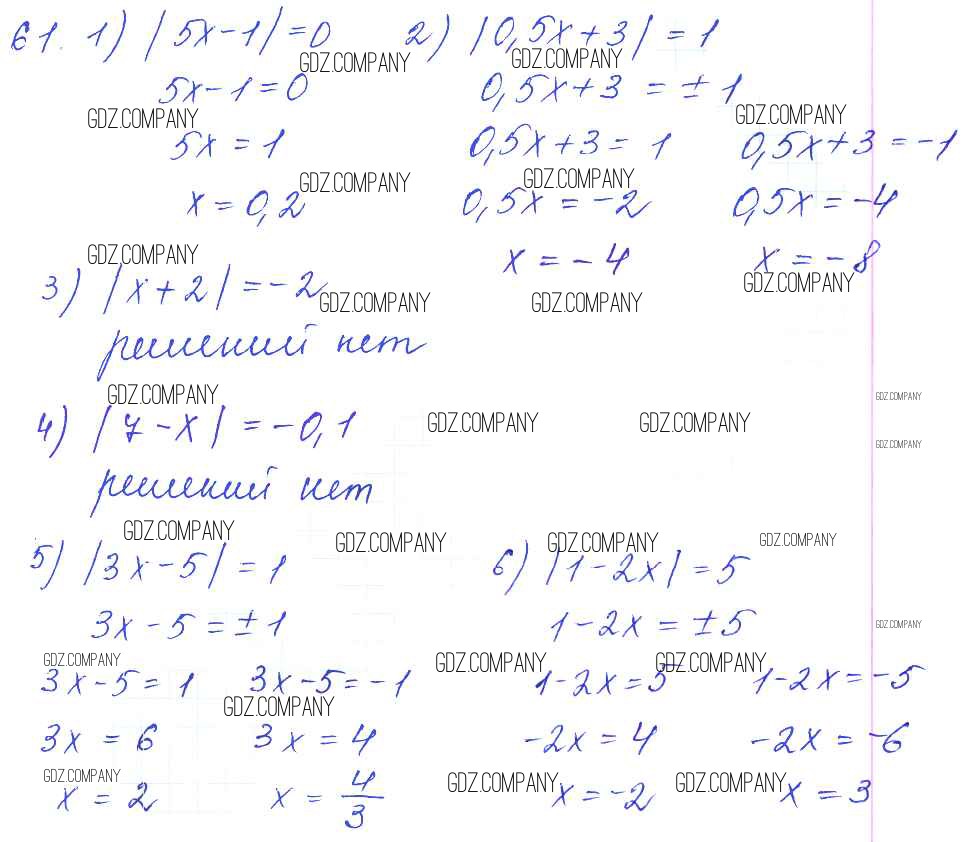 61. 1) |5x-1|=0 2) |0,5x+3|=1
GDZ.COMPANY GDZ.COMPANY
5x-1=0 0,5x+3=±1
GDZ.COMPANY GDZ.COMPANY
5x=1 0,5x+3=1 0,5x+3=-1
GDZ.COMPANY GDZ.COMPANY
x=0,2 0,5x=-2 0,5x=-4
GDZ.COMPANY x=-4 x=-8
3) |x+2|=-2 GDZ.COMPANY GDZ.COMPANY GDZ.COMPANY
решений нет
GDZ.COMPANY GDZ.COMPANY
4) |7-x|=-0,1 GDZ.COMPANY GDZ.COMPANY
GDZ.COMPANY
решений нет
GDZ.COMPANY GDZ.COMPANY GDZ.COMPANY GDZ.COMPANY
5) |3x-5|=1 6) |1-2x|=5
3x-5=±1 1-2x=±5 GDZ.COMPANY
GDZ.COMPANY GDZ.COMPANY GDZ.COMPANY
3x-5=1 3x-5=-1 1-2x=5 1-2x=-5
GDZ.COMPANY
3x=6 3x=4 -2x=4 -2x=-6
GDZ.COMPANY GDZ.COMPANY GDZ.COMPANY
x=2 x=4/3 x=-2 x=3